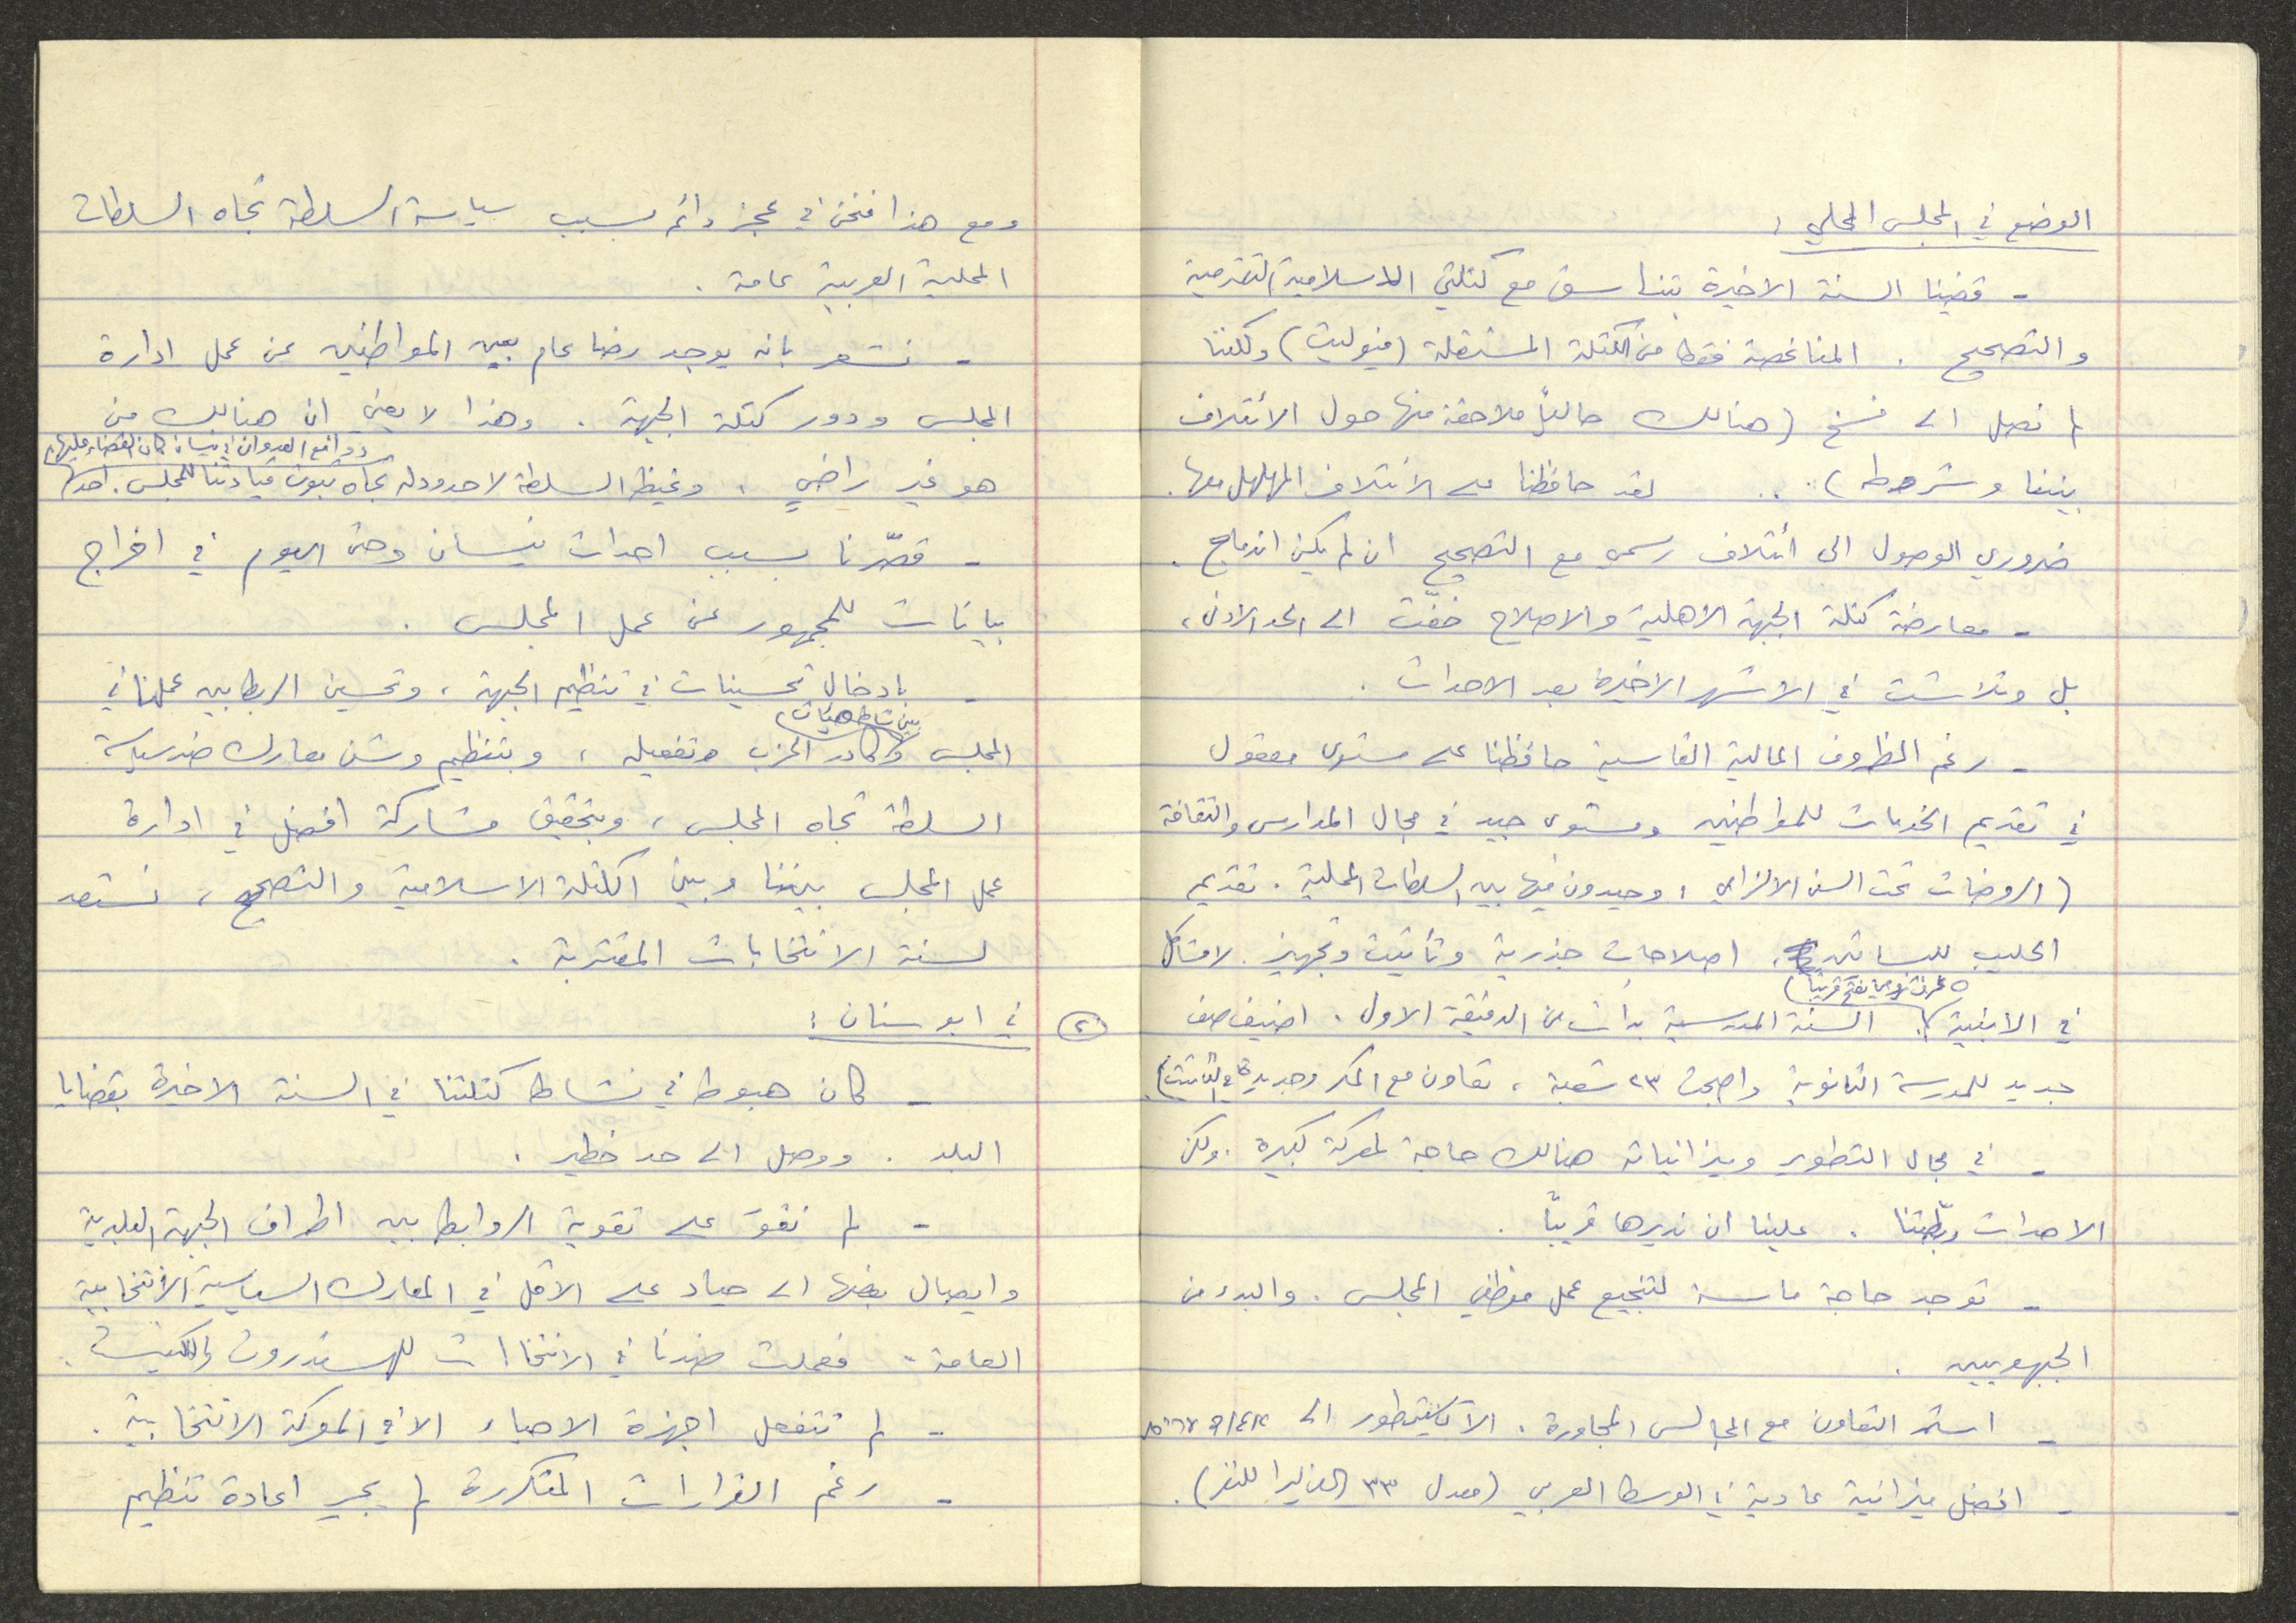 الوضع في المجلس المحلي :
- قضينا السنة الاخيرة بتناسق مع كتلتي الاسلامية التقدمية
والتصحيح . المناغصة فقط من الكتلة المستقلة ( ) ولكننا
لم نصل الى فسخ (هنالك حالياً ملاحقة منها حول الائتلاف
بيننا وشروطه) .. لقد حافظنا على الائتلاف المهلهل معها .
ضروري الوصول الى ائتلاف رسمي مع التصحيح ان لم يكن اندماج .
- معارضة كتلة الجبهة الاهلية والاصلاح خفّت الى الحد الادنى ،
بل وتلاشت في الاشهر الاخيرة بعد الاحداث .
- رغم الظروف المالية القاسية حافظنا على مستوى معقول
في تقديم الخدمات للمواطنين ومستوى جيد في مجال المدارس والثقافة
(الروضات تحت السن الالزامي ، وحيدون فيها بين السلطات المحلية . تقديم
الحليب للبساتين ، اصلاحات جذرية وتأثيث وتجهيز . لا مشاكل
٥ غرف قريباً
في الابنية . السنة المدرسية بدأت من الدقيقة الاولى . اضيف صف
جديد للمدرسة الثانوية واصبحت ٢٣ شعبة ، تعاون مع المكر وجديدة في
- في مجال التطوير وميزانياته هنالك حاجة لمعركة كبيرة . ولكن
الاحداث ربّطتنا . علينا ان نديرها قريباً .
- توجد حاجة ماسة لتنجيع عمل موظفي المجلس . والبدء من
الجبهويين .
- استمر التعاون مع المجالس المجاورة . الآن يتطور الى איגוד ערים
- افضل ميزانية عادية في الوسط العربي (معدل ٣٣ الف ليرا للنفر) .
ومع هذا فنحن في عجز دائم بسبب سياسة السلطة تجاه السلطات
المحلية العربية عامة .
- نشعر بانه يوجد رضا عام بين المواطنين عن عمل ادارة
المجلس ودور كتلة الجبهة . وهذا لا يعني ان هنالك من
دوافع العدوان في نيسان كان القضاء عليها
هو غير راضٍ . وغيظ السلطة لا حدود له تجاه ثبوت قيادتنا للمجلس . احد
- قصّرنا بسبب احداث نيسان وحتى اليوم في اخراج
بيانات للجمهور عن عمل المجلس .
- بادخال تحسينات في تنظيم الجبهة ، وتحسين الربط بين عملنا في
بين نشاط هيئات
المجلس وكادر الحزب وتفعيله ، وبتنظيم وشن معارك ضد سياسة
السلطة تجاه المجلس ، وبتحقيق مشاركة افضل في ادارة
عمل المجلس بيننا وبين الكتلة الاسلامية والتصحيح ، نستعد
لسنة الانتخابات المقتربة .
٢ في ابو سنان :
- كان هبوط في نشاط كتلتنا في السنة الاخيرة بقضايا
البلد . ووصل الى حد خطير .
- لم نقوَ على تقوية الروابط بين اطراف الجبهة البلدية
وايصال بعضها الى حياد على الاقل في المعارك السياسية الانتخابية
العامة . فعملت ضدنا في الانتخابات للهستدروت والكنيست .
- لم تتفعل اجهزة الاحياء الا في المعركة الانتخابية .
- رغم القرارات المتكررة لم يجر اعادة تنظيم